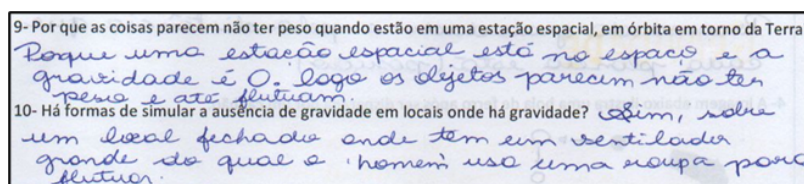 9- Por que as coisas parecem não ter peso quando estão em uma estação espacial, em órbita em torno da Terra
Porque uma estação espacial está no espaço e a
gravidade é 0. logo os objetos parecem não ter
peso e até flutuam.
10- Há formas de simular a ausência de gravidade em locais onde há gravidade? Sim, sobre
um local fechado onde tem um ventilador
grande do qual o homem usa uma roupa para
flutuar.